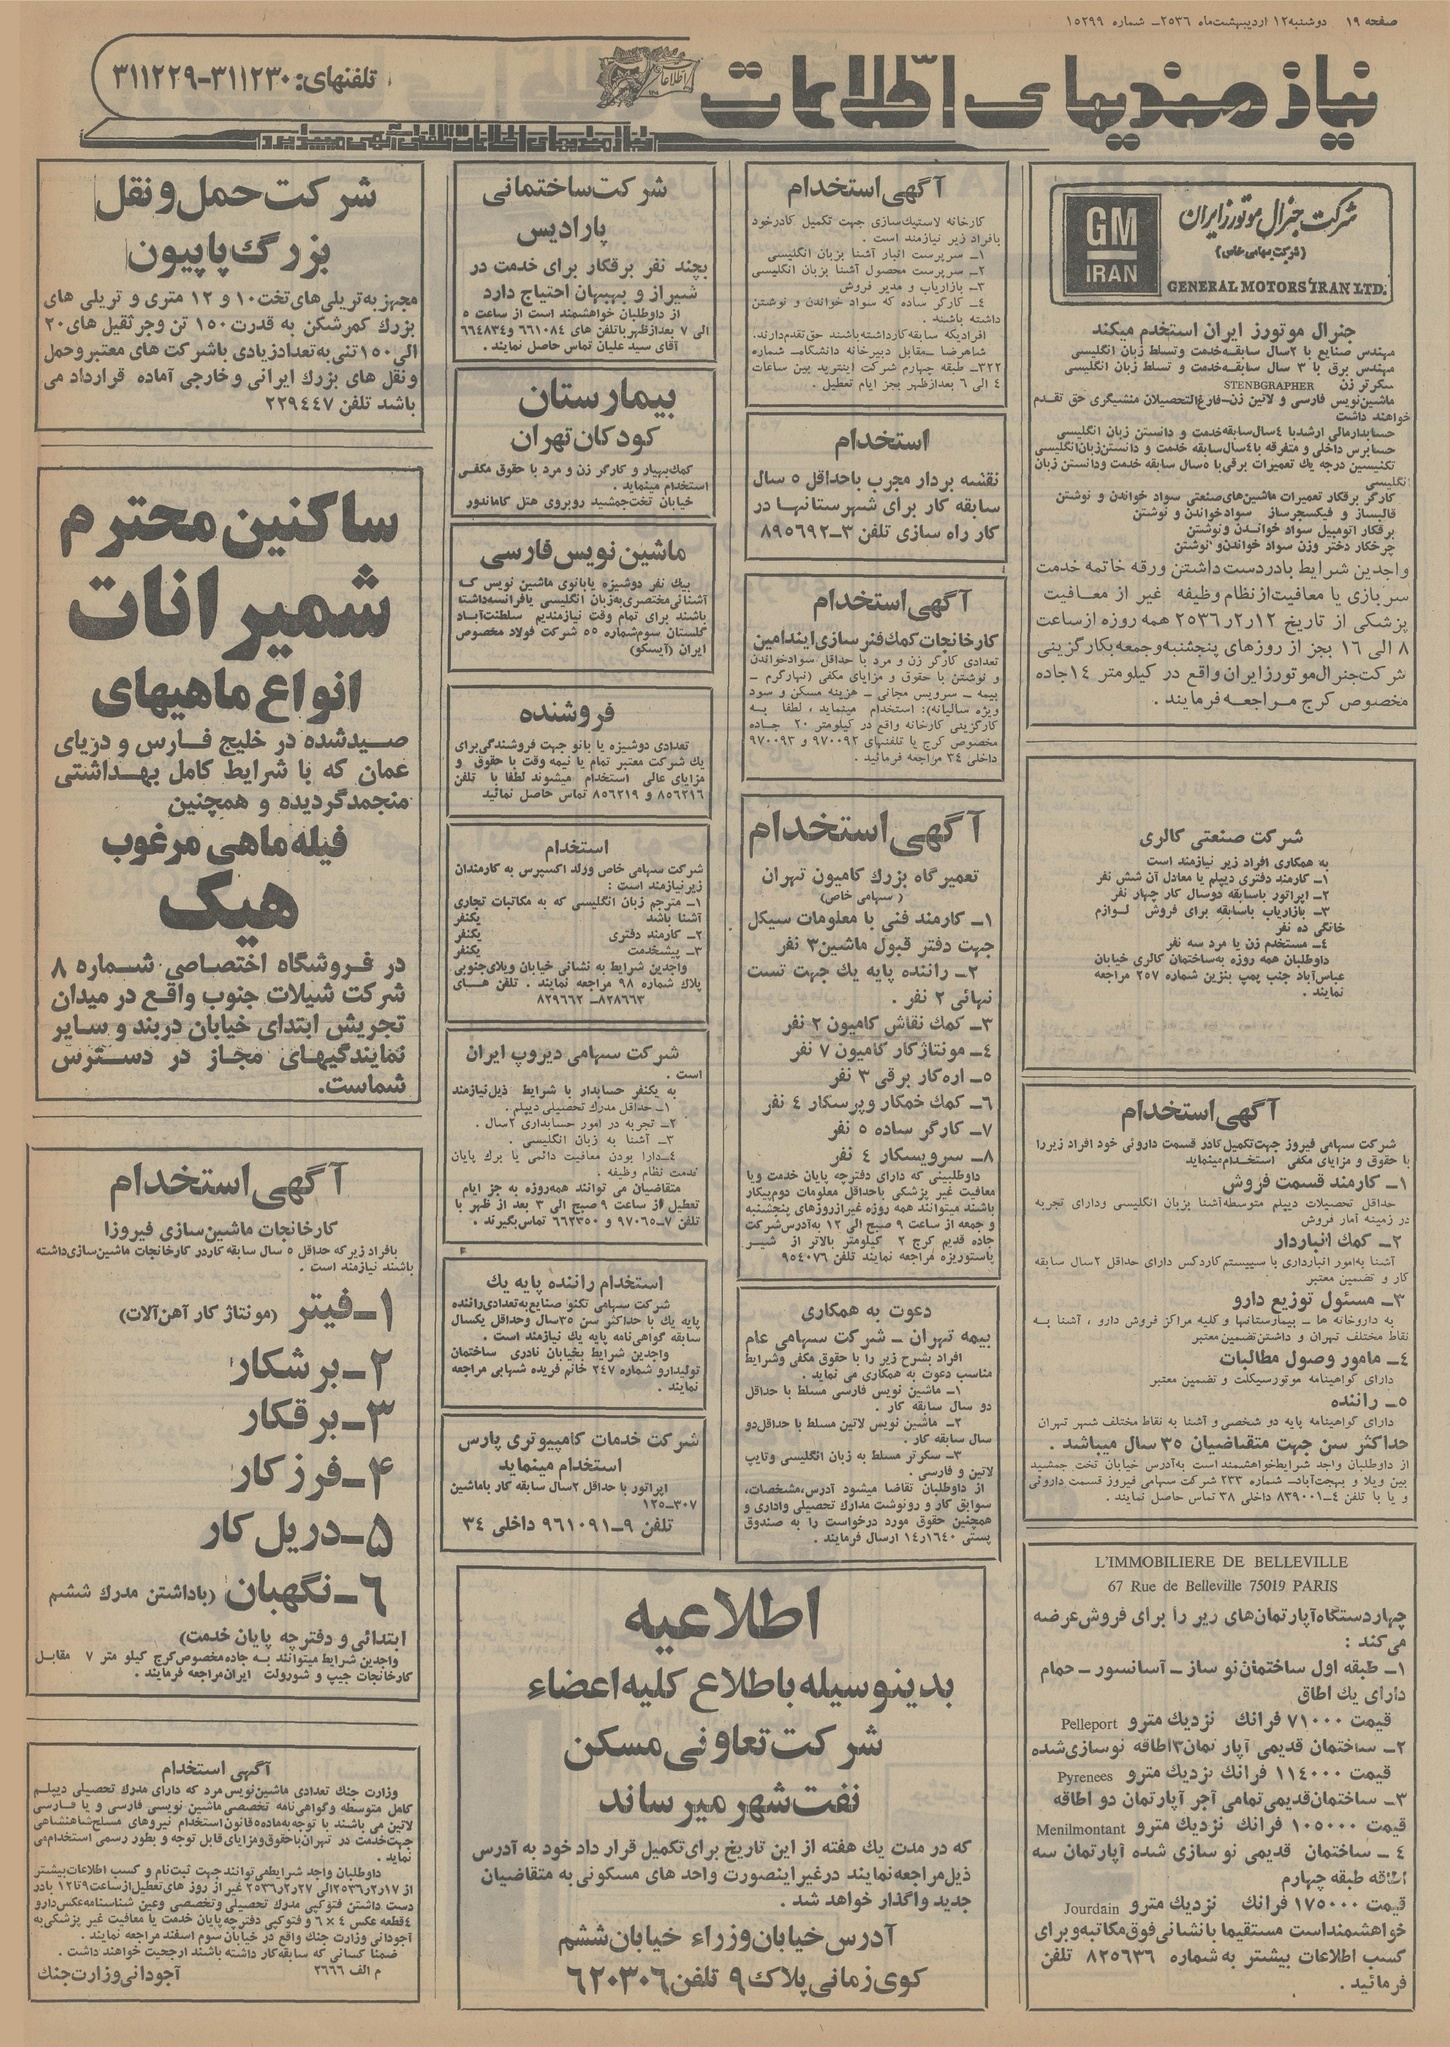 صفحه ۱۹ دوشنبه ۱۲ اردیبهشت ماه ۲۵۳۶ـ شماره ۱۵۲۹۹
نیازمندیهای اطلاعات
اطلاعات
تلفنهای: ۳۱۱۲۳۰-۳۱۱۲۲۹
نیازمندیهای اطلاعات تلفنی آگهی میپذیرد
شرکت جنرال موتورز ایران
(شرکت سهامی خاص)
GM
IRAN
GENERAL MOTORS IRAN LTD.
جنرال موتورز ایران استخدم میکند
مهندس صنایع با ۲ سال سابقه خدمت وتسلط زبان انگلیسی
مهندس برق با ۳ سال سابقه خدمت و تسلط زبان انگلیسی
سکرتر زن STENBGRAPHER
ماشین نویس فارسی و لاتین زن–فارغ التحصیلان منشیگری حق تقدم
خواهند داشت
حسابدارمالی ارشدبا ۴ سال سابقه خدمت و دانستن زبان انگلیسی
حسابرس داخلی و متفرقه با ۴ سال سابقه خدمت و دانستن زبان انگلیسی
تکنیسین درجه یك تعمیرات برقی با ۵ سال سابقه خدمت ودانستن زبان
انگلیسی
کارگر برقکار تعمیرات ماشین های صنعتی سواد خواندن و نوشتن
قالبساز و فیکسچرساز سواد خواندن و نوشتن
برقکار اتومبیل سواد خواندن ونوشتن
چرخکار دختر وزن سواد خواندن و نوشتن
واجدین شرایط بادردست داشتن ورقه خاتمه خدمت
سربازی یا معافیت از نظام وظیفه غیر از معافیت
پزشکی از تاریخ ۲۵۳۶٫۲٫۱۲ همه روزه از ساعت
۸ الی ۱۶ بجز از روزهای پنجشنبه وجمعه بکارگزینی
شرکت جنرال موتورز ایران واقع در کیلومتر ۱۴ جاده
مخصوص کرج مراجعه فرمایند .
شرکت صنعتی کالری
به همکاری افراد زیر نیازمند است
۱ـ کارمند دفتری دیپلم یا معادل آن شش نفر
۲ـ اپراتور باسابقه دوسال کار چهار نفر
۳ـ بازاریاب باسابقه برای فروش لوازم
خانگی ده نفر
۴ـ مستخدم زن یا مرد سه نفر
داوطلبان همه روزه به ساختمان کالری خیابان
عباس آباد جنب پمپ بنزین شماره ۲۵۷ مراجعه
نمایند .
آگهی استخدام
شرکت سهامی فیروز جهت تکمیل کادر قسمت داروئی خود افراد زیررا
با حقوق و مزایای مکفی استخدام مینماید
۱ـ کارمند قسمت فروش
حداقل تحصیلات دیپلم متوسطه آشنا بزبان انگلیسی ودارای تجربه
در زمینه آمار فروش
۲ـ کمك انباردار
آشنا به امور انبارداری با سیستم کاردکس دارای حداقل ۲ سال سابقه
کار و تضمین معتبر
۳ـ مسئول توزیع دارو
به داروخانه ها ـ بیمارستانها و کلیه مراکز فروش دارو ، آشنا به
نقاط مختلف تهران و داشتن تضمین معتبر
۴ـ مامور وصول مطالبات
دارای گواهینامه موتورسیکلت و تضمین معتبر
۵ـ راننده
دارای گواهینامه پایه دو شخصی و آشنا به نقاط مختلف شهر تهران
حداکثر سن جهت متقاضیان ۳۵ سال میباشد .
از داوطلبان واجد شرایط خواهشمند است به آدرس خیابان تخت جمشید
بین ویلا و بهجت آباد ـ شماره ۲۳۳ شرکت سهامی فیروز قسمت داروئی
و یا با تلفن ۴ـ۸۳۹۰۰۱ داخلی ۳۸ تماس حاصل نمایند .
L'IMMOBILIERE DE BELLEVILLE
67 Rue de Belleville 75019 PARIS
چهار دستگاه آپارتمان های زیر را برای فروش عرضه
می کند :
۱ـ طبقه اول ساختمان نو ساز ـ آسانسور ـ حمام
دارای یك اطاق
قیمت ۷۱۰۰۰ فرانك نزدیك مترو Pelleport
۲ـ ساختمان قدیمی آپارتمان ۳ اطاقه نوسازی شده
قیمت ۱۱۴۰۰۰ فرانك نزدیك مترو Pyrenees
۳ـ ساختمان قدیمی تمامی آجر آپارتمان دو اطاقه
قیمت ۱۰۵۰۰۰ فرانك نزدیك مترو Menilmontant
۴ ـ ساختمان قدیمی نو سازی شده آپارتمان سه
اطاقه طبقه چهارم
قیمت ۱۷۵۰۰۰ فرانك نزدیك مترو Jourdain
خواهشمند است مستقیما با نشانی فوق مکاتبه و برای
کسب اطلاعات بیشتر به شماره ۸۲۵۶۳۶ تلفن
فرمائید .
آگهی استخدام
کارخانه لاستیك سازی جهت تکمیل کادر خود
بافراد زیر نیازمند است .
۱ـ سرپرست انبار آشنا بزبان انگلیسی
۲ـ سرپرست محصول آشنا بزبان انگلیسی
۳ـ بازاریاب و مدیر فروش
۴ـ کارگر ساده که سواد خواندن و نوشتن
داشته باشند .
افرادیکه سابقه کار داشته باشند حق تقدم دارند.
شاهرضا ـ مقابل دبیرخانه دانشگاه ـ شماره
۳۲۲ـ طبقه چهارم شرکت اینترید بین ساعات
۴ الی ۶ بعدازظهر بجز ایام تعطیل .
استخدام
نقشه بردار مجرب باحداقل ۵ سال
سابقه کار برای شهرستانها در
کار راه سازی تلفن ۳ـ۸۹۵۶۹۲
آگهی استخدام
کارخانجات کمك فنر سازی ایندامین
تعدادی کارگر زن و مرد با حداقل سواد خواندن
و نوشتن با حقوق و مزایای مکفی (نهار گرم ـ
بیمه ـ سرویس مجانی ـ هزینه مسکن و سود
ویژه سالیانه): استخدام مینماید ، لطفا به
کارگزینی کارخانه واقع در کیلومتر ۲۰ جاده
مخصوص کرج یا تلفنهای ۹۷۰۰۹۲ و ۹۷۰۰۹۳
داخلی ۳۴ مراجعه فرمائید .
آگهی استخدام
تعمیرگاه بزرك کامیون تهران
(سهامی خاص)
۱ـ کارمند فنی با معلومات سیکل
جهت دفتر قبول ماشین ۳ نفر
۲ـ راننده پایه یك جهت تست
نهائی ۲ نفر .
۳ـ کمك نقاش کامیون ۲ نفر
۴ـ مونتاژکار کامیون ۷ نفر
۵ـ اره کار برقی ۳ نفر
۶ـ کمك خمکار و پرسکار ۴ نفر
۷ـ کارگر ساده ۵ نفر
۸ـ سرویسکار ۴ نفر
داوطلبینی که دارای دفترچه پایان خدمت ویا
معافیت غیر پزشکی باحداقل معلومات دوم پیکار
باشند میتوانند همه روزه غیراز روزهای پنجشنبه
و جمعه از ساعت ۹ صبح الی ۱۲ به آدرس شرکت
جاده قدیم کرج ۲ کیلومتر بالاتر از شیر
پاستوریزه مراجعه نمایند تلفن ۹۵۴۰۷۶
دعوت به همکاری
بیمه تهران ـ شرکت سهامی عام
افراد بشرح زیر را با حقوق مکفی وشرایط
مناسب دعوت به همکاری می نماید .
۱ـ ماشین نویس فارسی مسلط با حداقل
دو سال سابقه کار .
۲ـ ماشین نویس لاتین مسلط با حداقل دو
سال سابقه کار .
۳ـ سکرتر مسلط به زبان انگلیسی وتایپ
لاتین و فارسی .
از داوطلبان تقاضا میشود آدرس،مشخصات،
سوابق کار و رونوشت مدارك تحصیلی واداری و
همچنین حقوق مورد درخواست را به صندوق
پستی ۱۴٫۱۶۴۰ ارسال فرمایند .
شرکت ساختمانی
پارادیس
بچند نفر برقکار برای خدمت در
شیراز و بهبهان احتیاج دارد
از داوطلبان خواهشمند است از ساعت ۵
الی ۷ بعدازظهر باتلفن های ۶۶۱۰۸۴ و ۶۶۴۸۳۴
آقای سید علیان تماس حاصل نمایند .
بیمارستان
کودکان تهران
کمك بهیار و کارگر زن و مرد با حقوق مکفی
استخدام مینماید .
خیابان تخت جمشید روبروی هتل کاماندور
ماشین نویس فارسی
بیك نفر دوشیزه یا بانوی ماشین نویس که
آشنائی مختصری به زبان انگلیسی یا فرانسه داشته
باشند برای تمام وقت نیازمندیم سلطنت آباد
گلستان سوم شماره ۵۵ شرکت فولاد مخصوص
ایران (آیسکو)
فروشنده
تعدادی دوشیزه یا بانو جهت فروشندگی برای
یك شرکت معتبر تمام یا نیمه وقت با حقوق و
مزایای عالی استخدام میشوند لطفا با تلفن
۸۵۶۲۱۶ و ۸۵۶۲۱۹ تماس حاصل نمائید
استخدام
شرکت سهامی خاص ورلد اکسپرس به کارمندان
زیر نیازمند است :
۱ـ مترجم زبان انگلیسی که به مکاتبات تجاری
آشنا باشد یکنفر
۲ـ کارمند دفتری یکنفر
۳ـ پیشخدمت یکنفر
واجدین شرایط به نشانی خیابان ویلای جنوبی
پلاك شماره ۹۸ مراجعه نمایند . تلفن های
۸۲۸۶۶۳ـ ۸۲۹۶۶۲
شرکت سهامی دیروپ ایران
است .
به یکنفر حسابدار با شرایط ذیل نیازمند
۱ـ حداقل مدرك تحصیلی دیپلم .
۲ـ تجربه در امور حسابداری ۲ سال .
۳ـ آشنا به زبان انگلیسی .
۴ـ دارا بودن معافیت دائمی یا برك پایان
خدمت نظام وظیفه .
متقاضیان می توانند همه روزه به جز ایام
تعطیل از ساعت ۹ صبح الی ۳ بعد از ظهر با
تلفن ۷ـ۹۷۰۶۵ و ۶۶۲۳۵۰ تماس بگیرند .
استخدام راننده پایه یك
شرکت سهامی تکنو صنایع به تعدادی راننده
پایه یك با حداکثر سن ۳۵ سال وحداقل یکسال
سابقه گواهی نامه پایه یك نیازمند است .
واجدین شرایط بخیابان نادری ساختمان
تولیدارو شماره ۲۴۷ خانم فریده شهابی مراجعه
نمایند .
شرکت خدمات کامپیوتری پارس
استخدام مینماید
اپراتور با حداقل ۲ سال سابقه کار باماشین
۳۰۷ـ۱۲۵
تلفن ۹ـ۹۶۱۰۹۱ داخلی ۳۴
اطلاعیه
بدینوسیله باطلاع کلیه اعضاء
شرکت تعاونی مسکن
نفت شهر میرساند
که در مدت یك هفته از این تاریخ برای تکمیل قرار داد خود به آدرس
ذیل مراجعه نمایند درغیر اینصورت واحد های مسکونی به متقاضیان
جدید واگذار خواهد شد .
آدرس خیابان وزراء خیابان ششم
کوی زمانی پلاك ۹ تلفن ۶۲۰۳۰۶
شرکت حمل و نقل
بزرگ پاپیون
مجهز به تریلی های تخت ۱۰ و ۱۲ متری و تریلی های
بزرك کمرشکن به قدرت ۱۵۰ تن وجرثقیل های ۲۰
الی ۱۵۰ تنی به تعداد زیادی باشرکت های معتبر وحمل
ونقل های بزرك ایرانی و خارجی آماده قرارداد می
باشد تلفن ۲۲۹۴۴۷
ساکنین محترم
شمیرانات
انواع ماهیهای
صیدشده در خلیج فارس و دریای
عمان که با شرایط کامل بهداشتی
منجمد گردیده و همچنین
فیله ماهی مرغوب
هیک
در فروشگاه اختصاصی شماره ۸
شرکت شیلات جنوب واقع در میدان
تجریش ابتدای خیابان دربند و سایر
نمایندگیهای مجاز در دسترس
شماست.
آگهی استخدام
کارخانجات ماشین سازی فیروزا
بافراد زیر که حداقل ۵ سال سابقه کار در کارخانجات ماشین سازی داشته
باشند نیازمند است .
۱ـ فیتر (مونتاژ کار آهن آلات)
۲ـ برشکار
۳ـ برقکار
۴ـ فرز کار
۵ـ دریل کار
۶ـ نگهبان (باداشتن مدرك ششم
ابتدائی و دفترچه پایان خدمت)
واجدین شرایط میتوانند به جاده مخصوص کرج کیلو متر ۷ مقابل
کارخانجات جیپ و شورولت ایران مراجعه فرمایند .
آگهی استخدام
وزارت جنك تعدادی ماشین نویس مرد که دارای مدرك تحصیلی دیپلم
کامل متوسطه و گواهی نامه تخصصی ماشین نویسی فارسی و یا فارسی
لاتین می باشند با توجه به ماده ۵ قانون استخدام نیروهای مسلح شاهنشاهی
جهت خدمت در تهران باحقوق و مزایای قابل توجه و بطور رسمی استخدام می
نماید .
داوطلبان واجد شرایط می توانند جهت ثبت نام و کسب اطلاعات بیشتر
از ۲۵۳۶٫۲٫۱۷ الی ۲۵۳۶٫۲٫۲۷ غیر از روز های تعطیل از ساعت ۹ تا ۱۲ بادر
دست داشتن فتوکپی مدرك تحصیلی و تخصصی وعین شناسنامه عکس دارو
۴ قطعه عکس ۴ × ۶ و فتوکپی دفترچه پایان خدمت یا معافیت غیر پزشکی به
آجودانی وزارت جنك واقع در خیابان سوم اسفند مراجعه نمایند .
ضمنا کسانی که سابقه کار داشته باشند ارجحیت خواهند داشت .
م الف ۲۶۶۶ آجودانی وزارت جنك